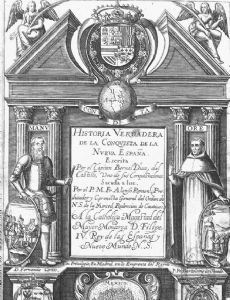 MANV
ORE
HISTORIA VERDADERA
DE LA CONQVISTA DE LA
NVEVA ESPAÑA.
Escrita
Por el Capitan Bernal Diaz del
Castillo, Vno de sus Conquistadores.
Sacada a luz,
Por el P. M. Fr. Alonso Remon, Pre
dicador y Coronista General del Orden de
N. S. de la Merced, Redencion de Cautivos.
A la Catholica Magestad del
Mayor Monarca D. Felipe
IV. Rey de las Españas y
Nuevo Mundo, N. S.
D. Fernando Cortes
en Madrid, en la Emprenta del Reyno
MEXICO